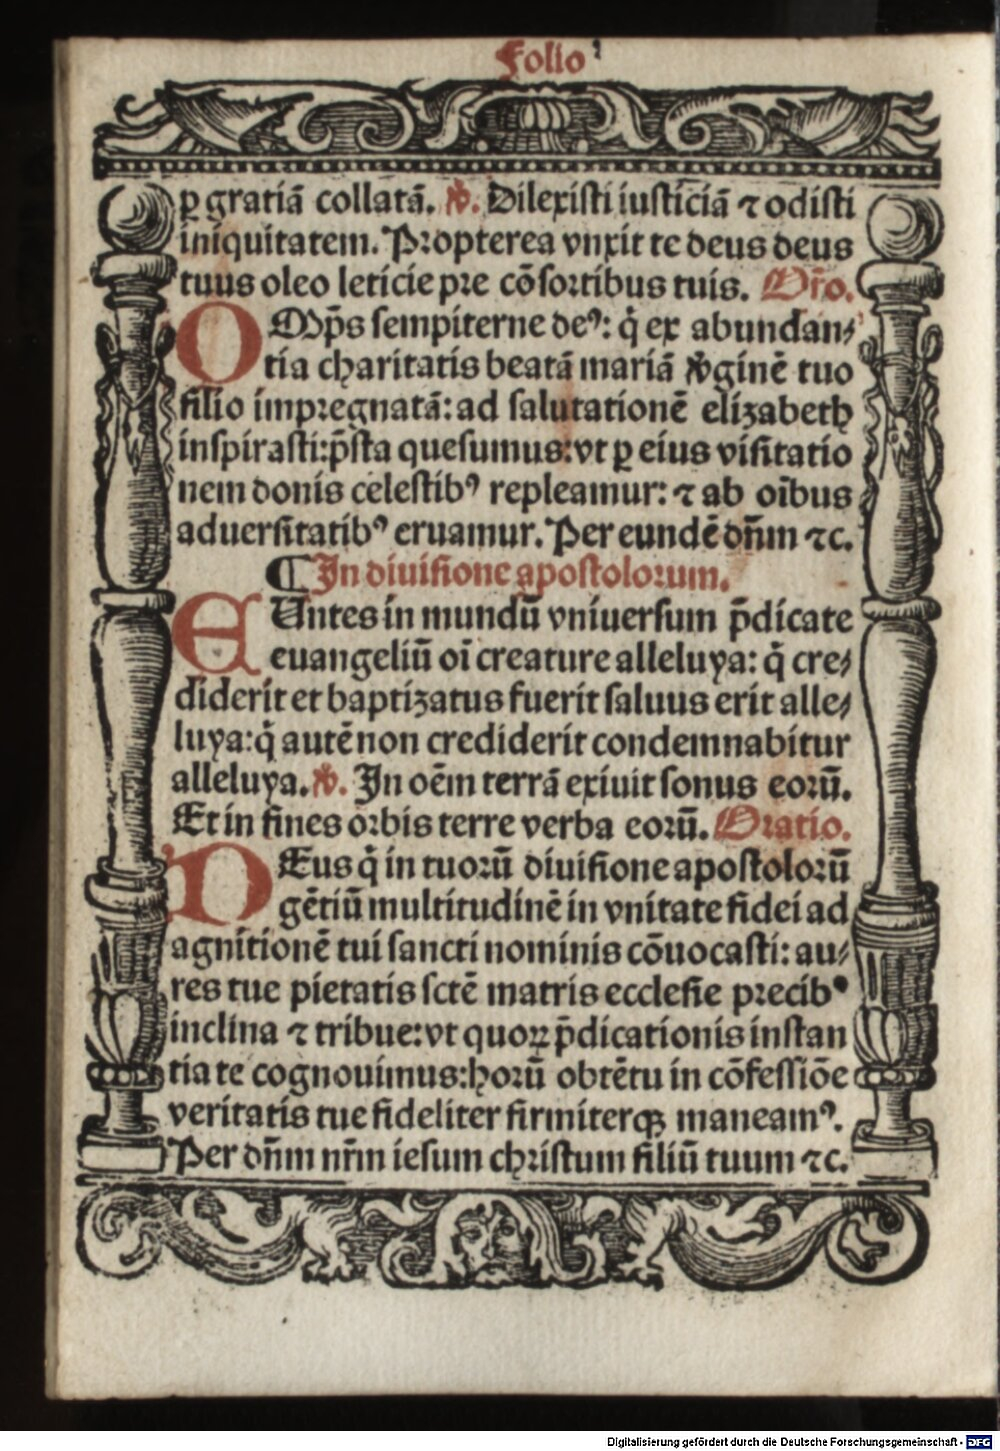 Folio
ꝑ gratiã collatã. ℣. Dilexisti iusticiã ⁊ odisti
iniquitatem. Propterea vnxit te deus deus
tuus oleo leticie pre cõsortibus tuis. Or̃o.
OMp̃s sempiterne deꝰ: q̇ ex abundan⸗
tia charitatis beatã mariã v̾ginẽ tuo
filio impregnatã: ad salutationẽ elizabeth
inspirasti: p̃sta quesumus: vt ꝑ eius visitatio
nem donis celestibꝰ repleamur: ⁊ ab oĩbus
aduersitatibꝰ eruamur. Per eundẽ dñm ⁊c.
¶ In diuisione apostolorum.
EUntes in mundũ vniuersum p̃dicate
euangeliũ oĩ creature alleluya: q̇ cre⸗
diderit et baptizatus fuerit saluus erit alle⸗
luya: q̇ autẽ non crediderit condemnabitur
alleluya. ℣. In oẽm terrã exiuit sonus eorũ.
Et in fines orbis terre verba eorũ. Oratio.
DEus q̇ in tuorũ diuisione apostolorũ
gẽtiũ multitudinẽ in vnitate fidei ad
agnitionẽ tui sancti nominis cõuocasti: au⸗
res tue pietatis sctẽ matris ecclesie precibꝰ
inclina ⁊ tribue: vt quoꝝ p̃dicationis instan
tia te cognouimus: horũ obtẽtu in cõfessiõe
veritatis tue fideliter firmiterqꝫ maneamꝰ.
Per dñm nr̃m iesum christum filiũ tuum ⁊c.
Digitalisierung gefördert durch die Deutsche Forschungsgemeinschaft - DFG